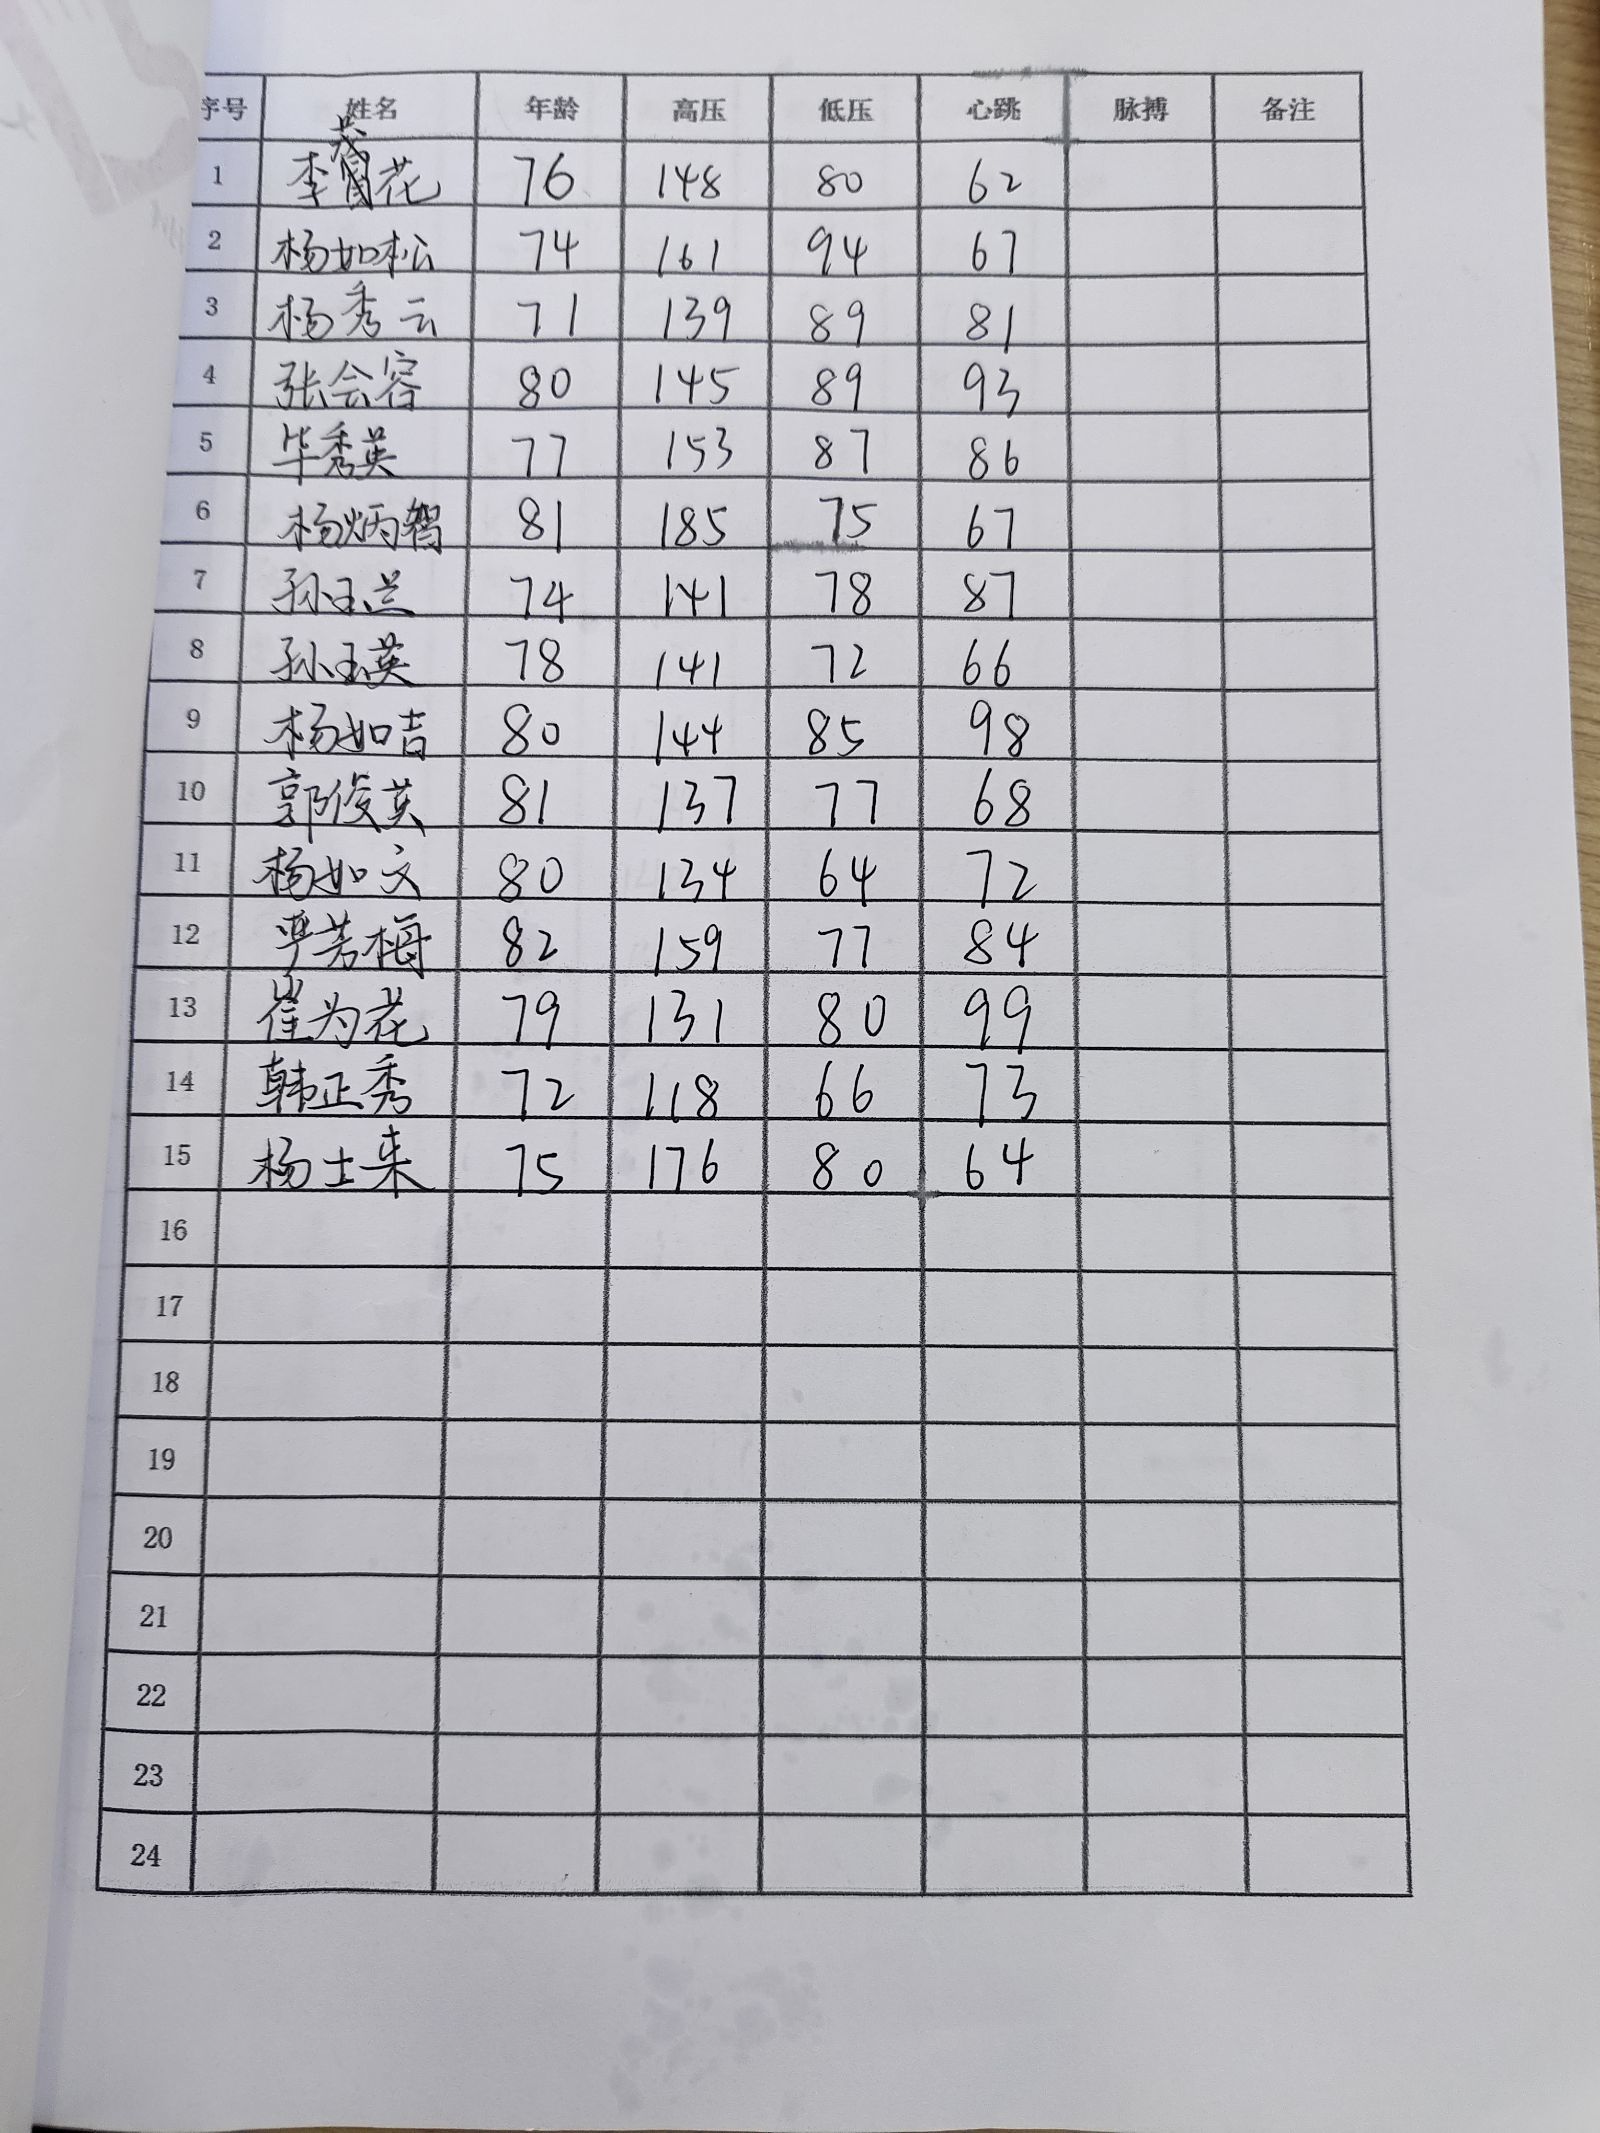 序号 姓名 年龄 高压 低压 心跳 脉搏 备注
1 李茂花 76 148 80 62
2 杨如松 74 161 94 67
3 杨秀云 71 139 89 81
4 张会容 80 145 89 93
5 毕秀英 77 153 87 86
6 杨炳智 81 185 75 67
7 孙玉兰 74 141 78 87
8 孙玉英 78 141 72 66
9 杨如吉 80 144 85 98
10 郭俊英 81 137 77 68
11 杨如文 80 134 64 72
12 严芳梅 82 159 77 84
13 崔为花 79 131 80 99
14 韩正秀 72 118 66 73
15 杨士来 75 176 80 64
16
17
18
19
20
21
22
23
24